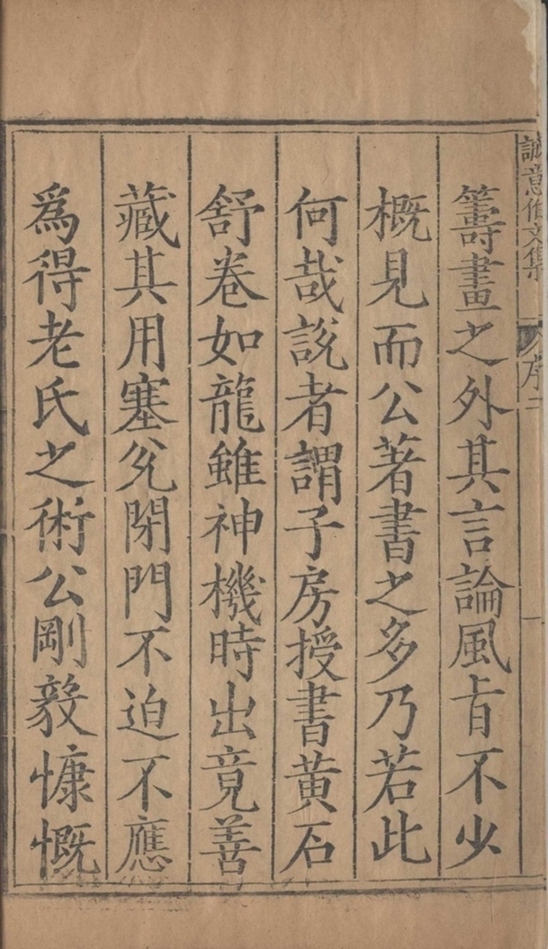 誠意伯文集
序二
籌畫之外其言論風旨不少
概見而公著書之多乃若此
何哉說者謂子房授書黃石
舒卷如龍雖神機時出竟善
藏其用塞兊閉門不迫不應
為得老氏之術公剛毅慷慨